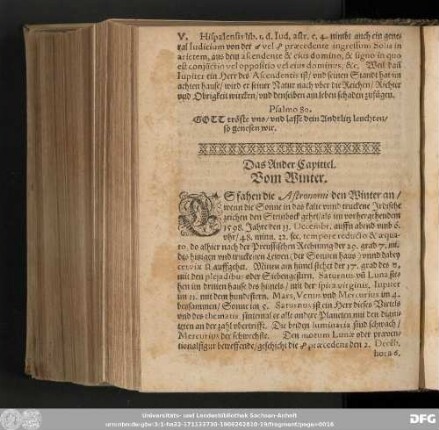 V. Hispalensis lib. 1. d. Iud. astr. c. 4. nimbt auch ein gene
ral Iudicium von der ☌ vel ☍ præcedente ingressum Solis in
arietem, aus dem ascendente & eius domino, & signo in quo
est conjunctio vel oppositio vel eius dominus, &c. Weil dan
Iupiter ein Herr des Ascendentis ist/ vnd seinen Standt hat im
achten hause/ wird er seiner Natur nach vber die Reichen/ Richter
vnd Obrigkeit wircken/ vnd denselben am leben schaden zufügen.
Psalmo 80.
GOTT tröste vns/ vnd lasse dein Andtlitz leuchten/
so genesen wir.
Das Ander Capittel.
Vom Winter.
ES fahen die Astronomi den Winter an/
wenn die Sonne in das kalte vnnd truckene Irdische
zeichen den Steinbock gehet/ als im vorhergehendem
1598. Jahre den 11. Decembr. auffn abend vmb 6.
vhr/ 48. minu. 22. sec. tempore reducto & æqua-
to, do alhier nach der Preussischen Rechnung der 29. grad 7. mi.
des hitzigen vnd truckenen Lewen/ der Sonnen haus/ vnnd dabey
auffgehet. Mitten am himel stehet der 17. grad des
mit den plejadibus oder Siebengestirn. Saturnus vñ Luna ste-
hen im dritten hause des himels/ mit der spica virginis, Iupiter
im 11. mit dem hundestern. Mars, Venus vnd Mercurius im 4.
Saturnus ist ein Herr dieses Viertls
vnd des thematis sintemal er alle ander Planeten mit den digni-
teten an der zahl vbertrifft. Die beiden luminaria sind schwach/
Mercurius der schwechste. Den motum Lunæ oder præven-
tionalfigur betreffende/ geschicht die ☍ præcedens den 2. Decêb.
hora 6.
Universitäts- und Landesbibliothek Sachsen-Anhalt
DFG